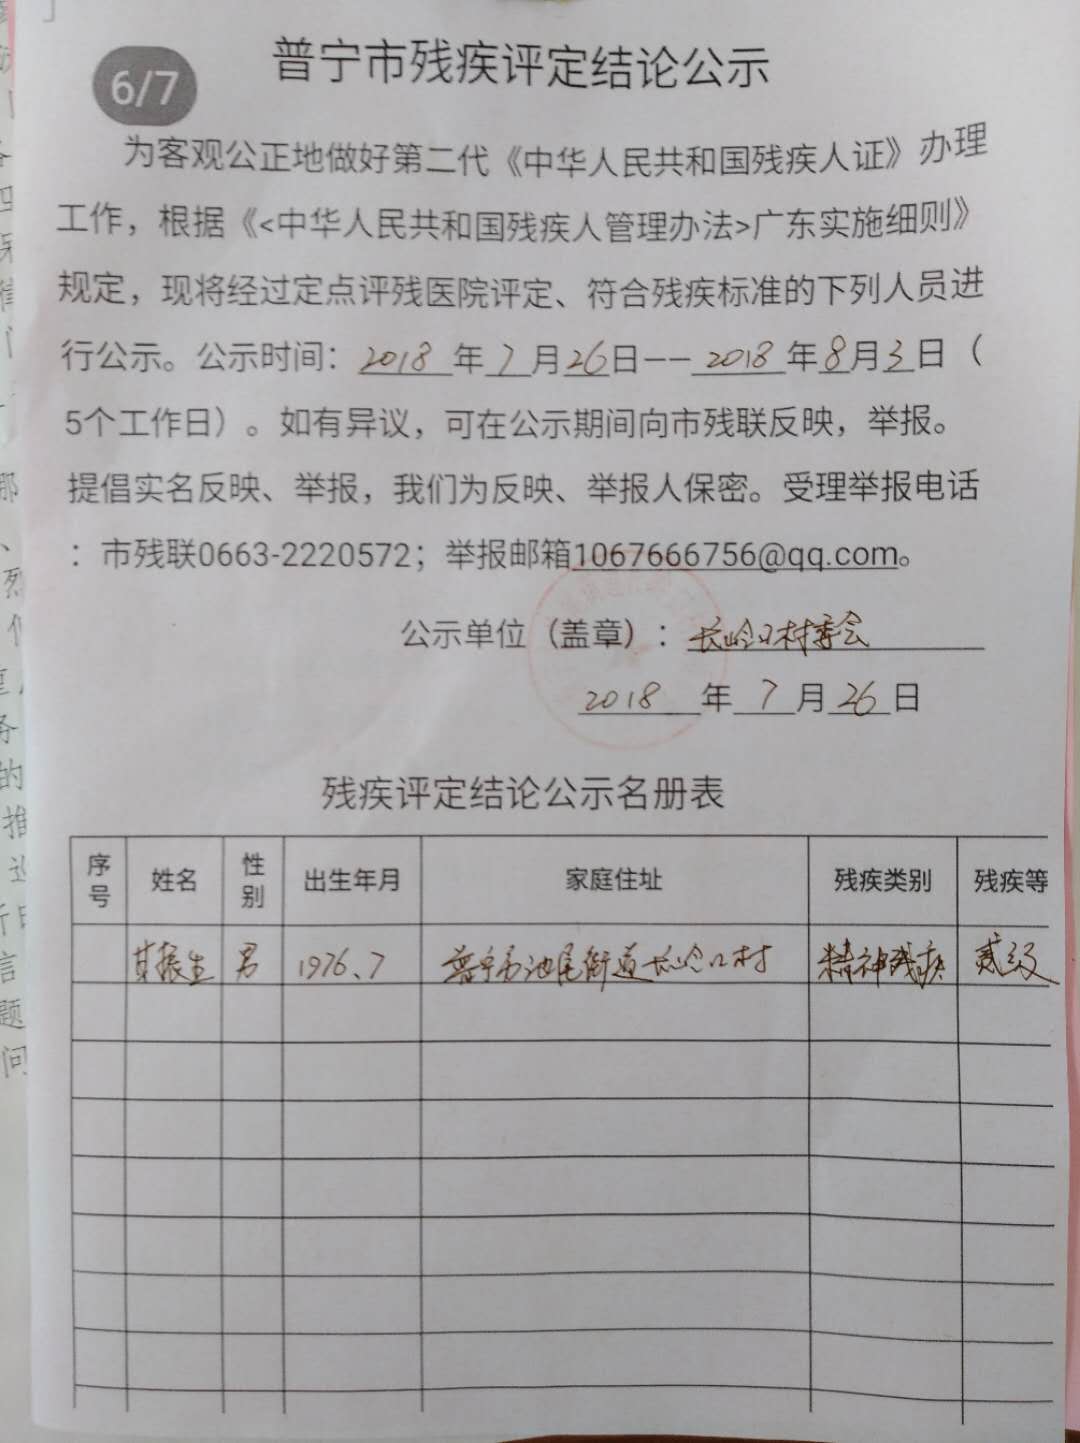 6/7
普宁市残疾评定结论公示
为客观公正地做好第二代《中华人民共和国残疾人证》办理
工作，根据《<中华人民共和国残疾人管理办法>广东实施细则》
规定，现将经过定点评残医院评定、符合残疾标准的下列人员进
行公示。公示时间：2018年7月26日——2018年8月3日（
5个工作日）。如有异议，可在公示期间向市残联反映，举报。
提倡实名反映、举报，我们为反映、举报人保密。受理举报电话
：市残联0663-2220572；举报邮箱1067666756@qq.com。
公示单位（盖章）：长岭口村委会
2018年7月26日
残疾评定结论公示名册表
序号 姓名 性别 出生年月 家庭住址 残疾类别 残疾等
甘振生 男 1976、7 普宁市池尾街道长岭口村 精神残疾 贰级